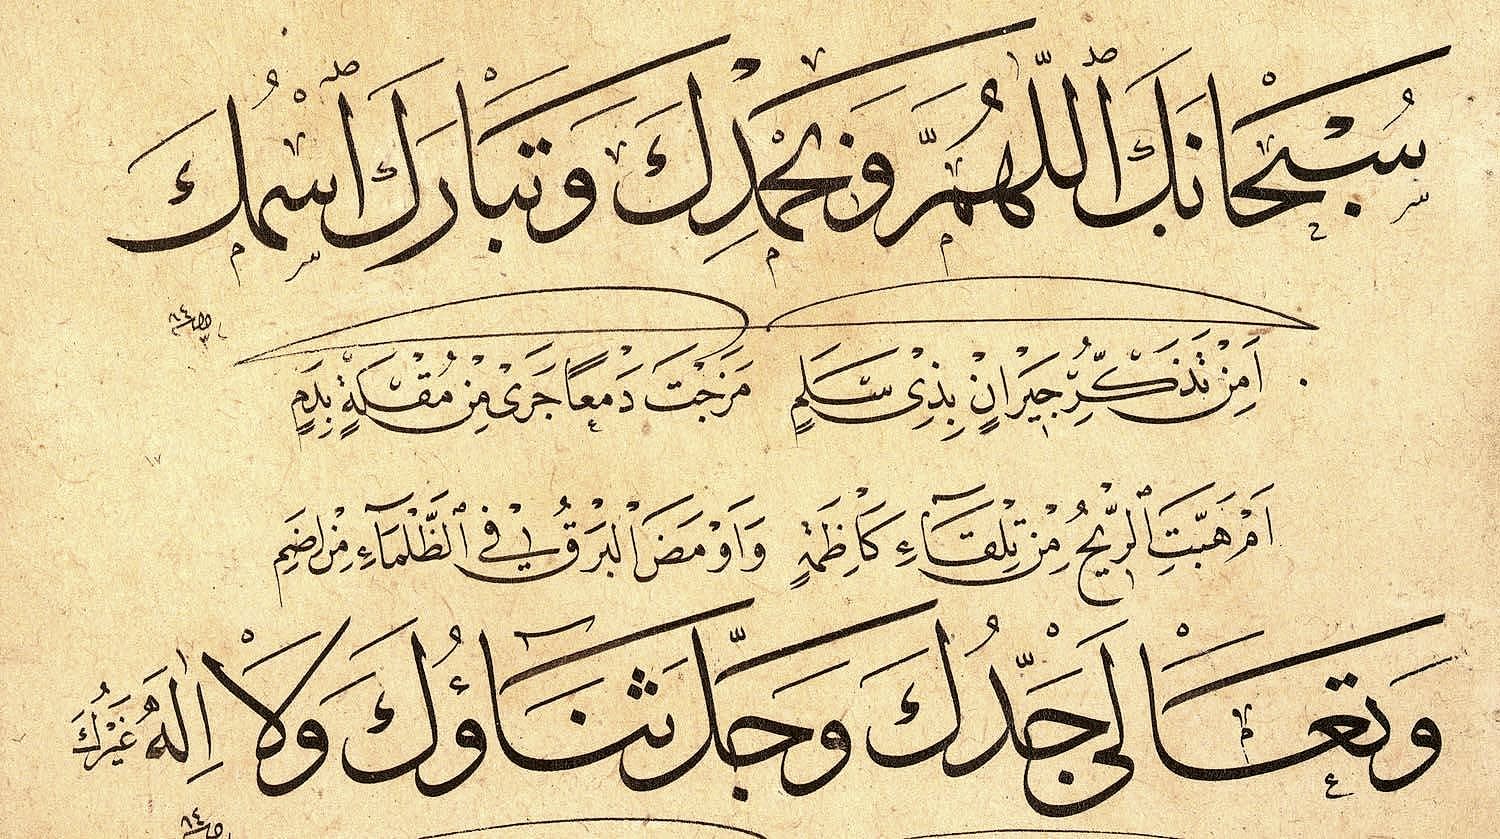 سُبْحَانَكَ ٱللّٰهُمَّ وَبِحَمْدِكَ وَتَبَارَكَ ٱسْمُكَ
اَمِنْ تَذَكُّرِ جِيرَانٍ بِذِى سَلَمٍ مَزَجْتَ دَمْعًا جَرَى مِنْ مُقْلَةٍ بِدَمٍ
اَمْ هَبَّتِ ٱلرِّيحُ مِنْ تِلْقَآءِ كَاظِمَةٍ وَاَوْمَضَ ٱلْبَرْقُ فِى ٱلظَّلْمَآءِ مِنْ اِضَمِ
وَتَعَالٰى جَدُّكَ وَجَلَّ ثَنَآؤُكَ وَلَا اِلٰهَ غَيْرُكَ